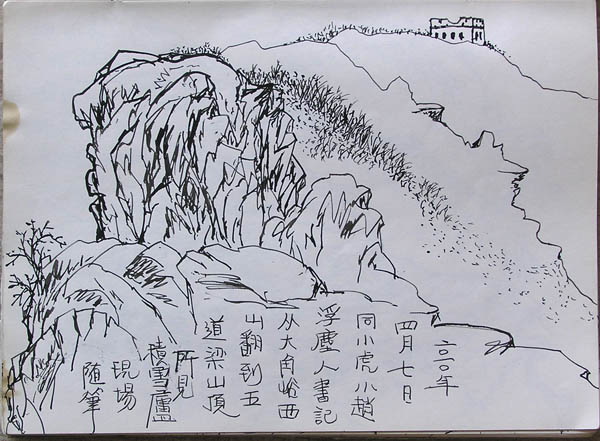 二〇一〇年
四月七日
同小虎小趙
浮塵人書記
从大角峪西
山翻到五
道梁山頂
所見
積雪廬
現場
随筆